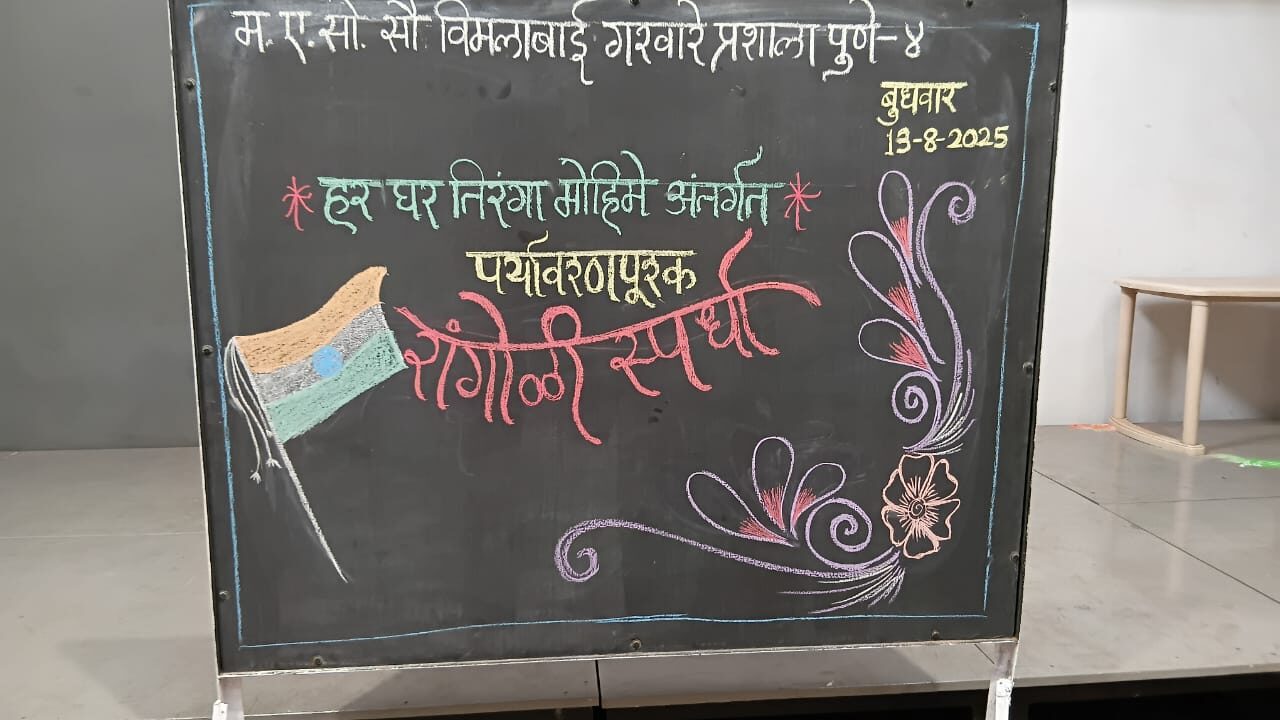 म. ए. सो. सौ विमलाबाई गरवारे प्रशाला पुणे-४
बुधवार
13-8-2025
* हर घर तिरंगा मोहिमे अंतर्गत *
पर्यावरणपूरक
रांगोळी स्पर्धा